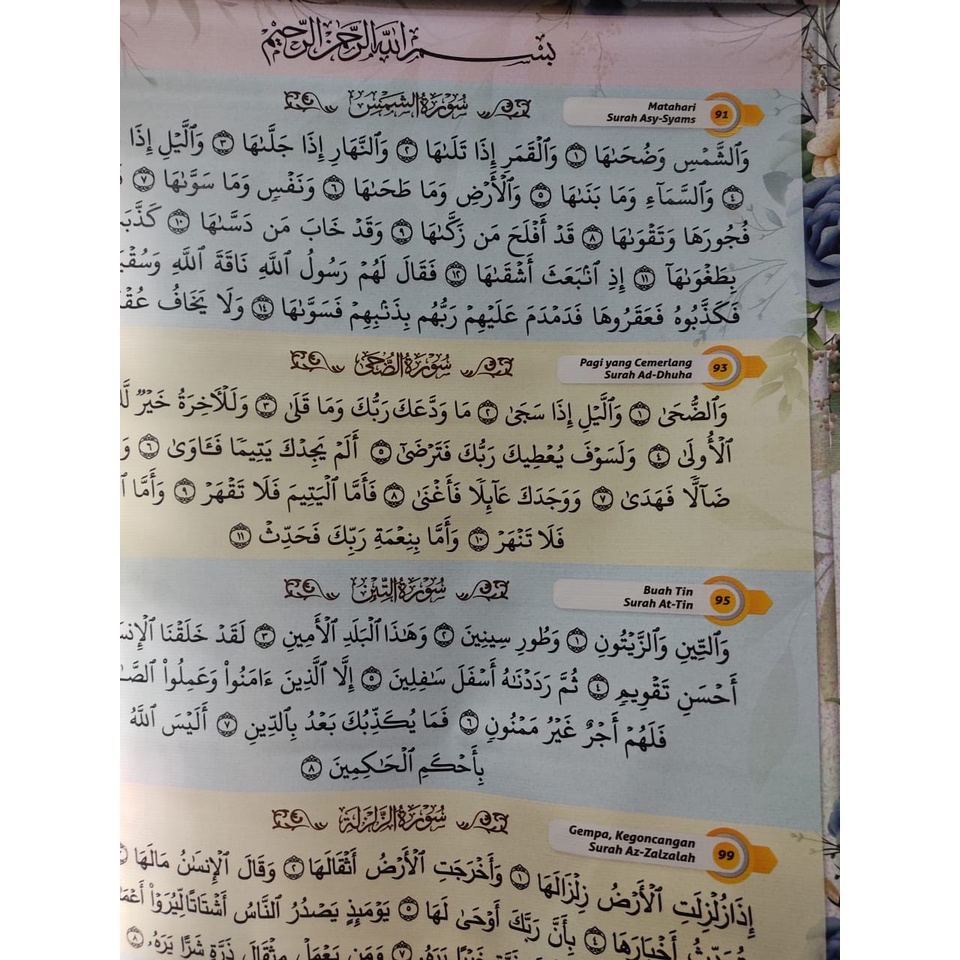 بِسْمِ اللَّهِ الرَّحْمَنِ الرَّحِيمِ
سُورَةُ الشَّمْسِ
Matahari
Surah Asy-Syams
91
وَٱلشَّمْسِ وَضُحَىٰهَا ١ وَٱلْقَمَرِ إِذَا تَلَىٰهَا ٢ وَٱلنَّهَارِ إِذَا جَلَّىٰهَا ٣ وَٱلَّيْلِ إِذَا
٤ وَٱلسَّمَآءِ وَمَا بَنَىٰهَا ٥ وَٱلْأَرْضِ وَمَا طَحَىٰهَا ٦ وَنَفْسٍ وَمَا سَوَّىٰهَا ٧
فُجُورَهَا وَتَقْوَىٰهَا ٨ قَدْ أَفْلَحَ مَن زَكَّىٰهَا ٩ وَقَدْ خَابَ مَن دَسَّىٰهَا ١٠
بِطَغْوَىٰهَآ ١١ إِذِ ٱنۢبَعَثَ أَشْقَىٰهَا ١٢ فَقَالَ لَهُمْ رَسُولُ ٱللَّهِ نَاقَةَ ٱللَّهِ
فَكَذَّبُوهُ فَعَقَرُوهَا فَدَمْدَمَ عَلَيْهِمْ رَبُّهُم بِذَنۢبِهِمْ فَسَوَّىٰهَا ١٤ وَلَا يَخَافُ
سُورَةُ الضُّحَى
Pagi yang Cemerlang
Surah Ad-Dhuha
93
وَٱلضُّحَىٰ ١ وَٱلَّيْلِ إِذَا سَجَىٰ ٢ مَا وَدَّعَكَ رَبُّكَ وَمَا قَلَىٰ ٣ وَلَلْآخِرَةُ خَيْرٌ
ٱلْأُولَىٰ ٤ وَلَسَوْفَ يُعْطِيكَ رَبُّكَ فَتَرْضَىٰٓ ٥ أَلَمْ يَجِدْكَ يَتِيمًا فَـَٔاوَىٰ ٦
ضَآلًّا فَهَدَىٰ ٧ وَوَجَدَكَ عَآئِلًا فَأَغْنَىٰ ٨ فَأَمَّا ٱلْيَتِيمَ فَلَا تَقْهَرْ ٩ وَأَمَّا
فَلَا تَنْهَرْ ١٠ وَأَمَّا بِنِعْمَةِ رَبِّكَ فَحَدِّثْ ١١
سُورَةُ التِّينِ
Buah Tin
Surah At-Tin
95
وَٱلتِّينِ وَٱلزَّيْتُونِ ١ وَطُورِ سِينِينَ ٢ وَهَٰذَا ٱلْبَلَدِ ٱلْأَمِينِ ٣ لَقَدْ خَلَقْنَا
أَحْسَنِ تَقْوِيمٍ ٤ ثُمَّ رَدَدْنَٰهُ أَسْفَلَ سَٰفِلِينَ ٥ إِلَّا ٱلَّذِينَ ءَامَنُوا۟ وَعَمِلُوا۟
فَلَهُمْ أَجْرٌ غَيْرُ مَمْنُونٍ ٦ فَمَا يُكَذِّبُكَ بَعْدُ بِٱلدِّينِ ٧ أَلَيْسَ ٱللَّهُ
بِأَحْكَمِ ٱلْحَٰكِمِينَ ٨
سُورَةُ الزَّلْزَلَةِ
Gempa, Kegoncangan
Surah Az-Zalzalah
99
إِذَا زُلْزِلَتِ ٱلْأَرْضُ زِلْزَالَهَا ١ وَأَخْرَجَتِ ٱلْأَرْضُ أَثْقَالَهَا ٢ وَقَالَ ٱلْإِنسَٰنُ مَالَهَا
تُحَدِّثُ أَخْبَارَهَا ٤ بِأَنَّ رَبَّكَ أَوْحَىٰ لَهَا ٥ يَوْمَئِذٍ يَصْدُرُ ٱلنَّاسُ أَشْتَاتًا لِّيُرَوْا۟
خَيْرًا يَرَهُۥ ٧ وَمَن يَعْمَلْ مِثْقَالَ ذَرَّةٍ شَرًّا يَرَهُۥ ٨